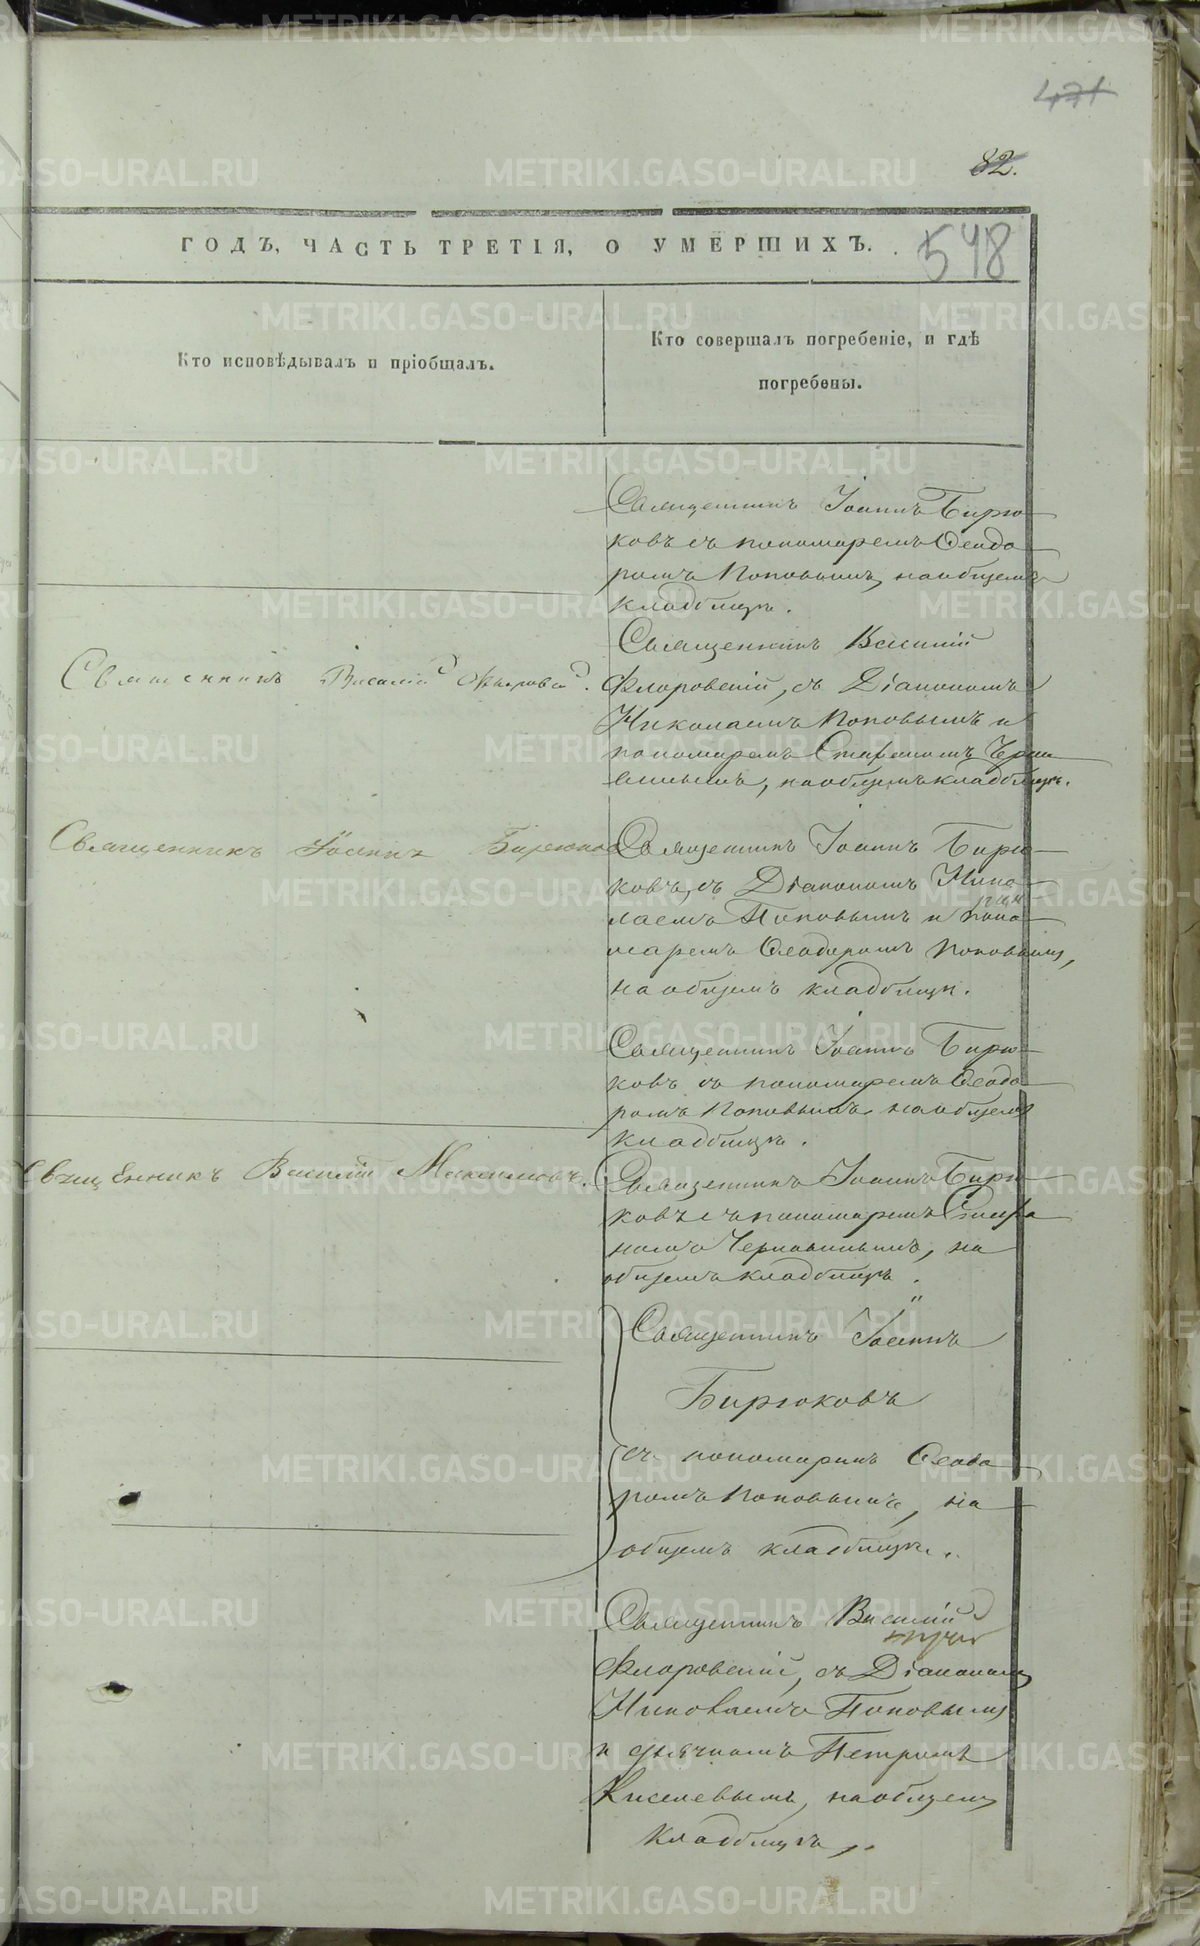 471
82.
ГОДЪ, ЧАСТЬ ТРЕТІЯ, О УМЕРШИХЪ.
548
Кто исповѣдывалъ и пріобщалъ.
Кто совершалъ погребеніе, и гдѣ
погребены.
Священникъ Іоаннъ Бирю-
ковъ съ пономаремъ Ѳеодо-
ромъ Поповымъ, на общемъ
кладбищѣ.
Священникъ Василій Флоровскій.
Священникъ Василій
Флоровскій, съ Діакономъ
Николаемъ Поповымъ и
пономаремъ Стефаномъ
на общемъ кладбищѣ.
Священникъ Іоаннъ Бирюковъ
Священникъ Іоаннъ Бирю-
ковъ, съ Діакономъ Нико-
лаемъ Поповымъ и поно-
маремъ Ѳеодоромъ Поповымъ,
на общемъ кладбищѣ.
Священникъ Іоаннъ Бирю-
ковъ съ пономаремъ Ѳеодо-
ромъ Поповымъ, на общемъ
кладбищѣ.
Священникъ Василій
Священникъ Іоаннъ Бирю-
ковъ съ пономаремъ Стефа-
номъ на
общемъ кладбищѣ.
Священникъ Іоаннъ
Бирюковъ
съ пономаремъ Ѳеодо-
ромъ Поповымъ, на
общемъ кладбищѣ.
Священникъ Василій
Флоровскій, съ Діакономъ
Николаемъ Поповымъ
и дьячкомъ Петромъ
Киселевымъ, на общемъ
кладбищѣ.
METRIKI.GASO-URAL.RU